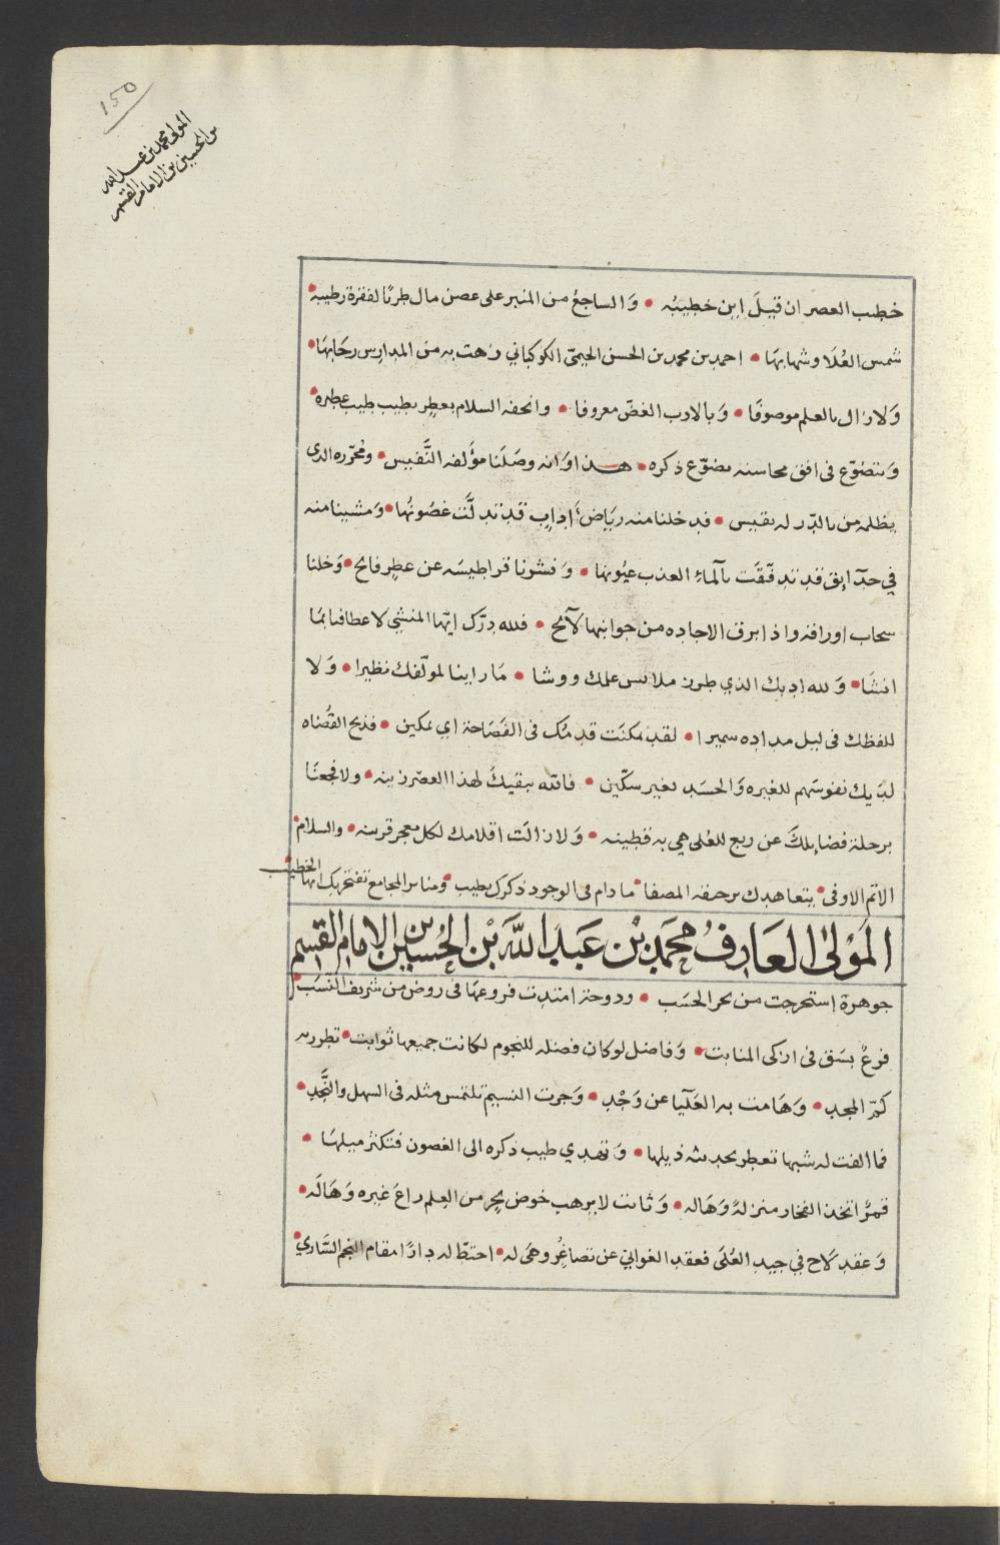 150
المولى محمد بن عبد الله
بن الحسين بن الامام القسم
خطيب العصر ان قيلَ اِبن خطيبُه • وَالساجعُ من المنبر على غصن مال طربًا لفقرة رطيبه •
شمس العُلَا وشهابهَا • احمد بن محمد بن الحسن الحيميّ الكوكباني زهت به من المدارس رحَابهَا •
وَلا زال بالعلم موصوفًا • وَبالادب الغضّ معروفا • واتحفه السلام بعطر بطيب طيب عطره •
وَيتضوّع في افق محاسنه بضوّع ذكره • هذا وانه وصَلَنا مؤَلفه النَّفيس • ومُحرّره الذي
يظلمه من بالدّر له يقيس • فدخلنا منه ريَاض اَدابٍ قد تدلَّت غصُونُها • وَمشينا منه
في حدآئق قد تدفّقَت بآلماءِ العذب عيُونهَا • وَنشرنا قراطيسَه عن عطرٍ فائح • وَخلنا
سحاب اوراقه واذا برق الاجاده من جوانبها لآئح • فلله درّك ايّها المنشي لاعطافنا بمَا
انشَا • وَلله ادبك الذي طرز ملابس علمك ووشا • مَا راينا لمولّفك نظيرا • وَلا
للفظك في ليل مداده سميرا • لقد تمكنَت قدمُك في الفَصَاحة اي تمكين • فذبح القُضَاه
لدَيك نفوسَهم للغيره وَالحسَد بغير سكّين • فالله يبقيكَ لهذا العصْر زينه • ولا فجعنَا
برحلة فضايلكَ عن ربع للعُلى هي به قطينه • وَلا زالت اقلامك لكل معجز قرينه • والسلام
الاتم الاوفى • يتعاهدك برحيقه المصفا • ما دام في الوجود ذكرك يطيب • ومنابر المجامع تفتخر بك ايها الخطيب •
المَوْلى العَارفُ محمَّد بْن عَبد اللّه بْن الحُسين بن الامام القسم
جوهرة استخرجت من بحر الحسَب • ودوحة امتدت فروعهَا في روض من شريف النّسَب •
فرعٌ بسَق في ازكى المنابت • وَفاضل لو كان فضله للنجوم لكانت جميعها ثوابت • تطرز به
كمّ المجد • وَهَامت به العَليا عن وَجْد • وَجرت النسيم تلتمس مثله في السهل والنَّجد •
فما الفت له شبها تعطر بحديثه ذيلها • وَتهدي طيب ذكره الى الغصون فتكثر ميلهَا •
قمرٌ اتخذ الفخار منزلةً وَهَاله • وَثابت لا يرهب خوض بحر من العِلم راعَ غيره وَهَالَه •
وَعقد لَاح في جيد العُلَى فعقد الغواني عن تصاغُر وهيَ له • احتطّ له دارًا مقام النجم السّاري •